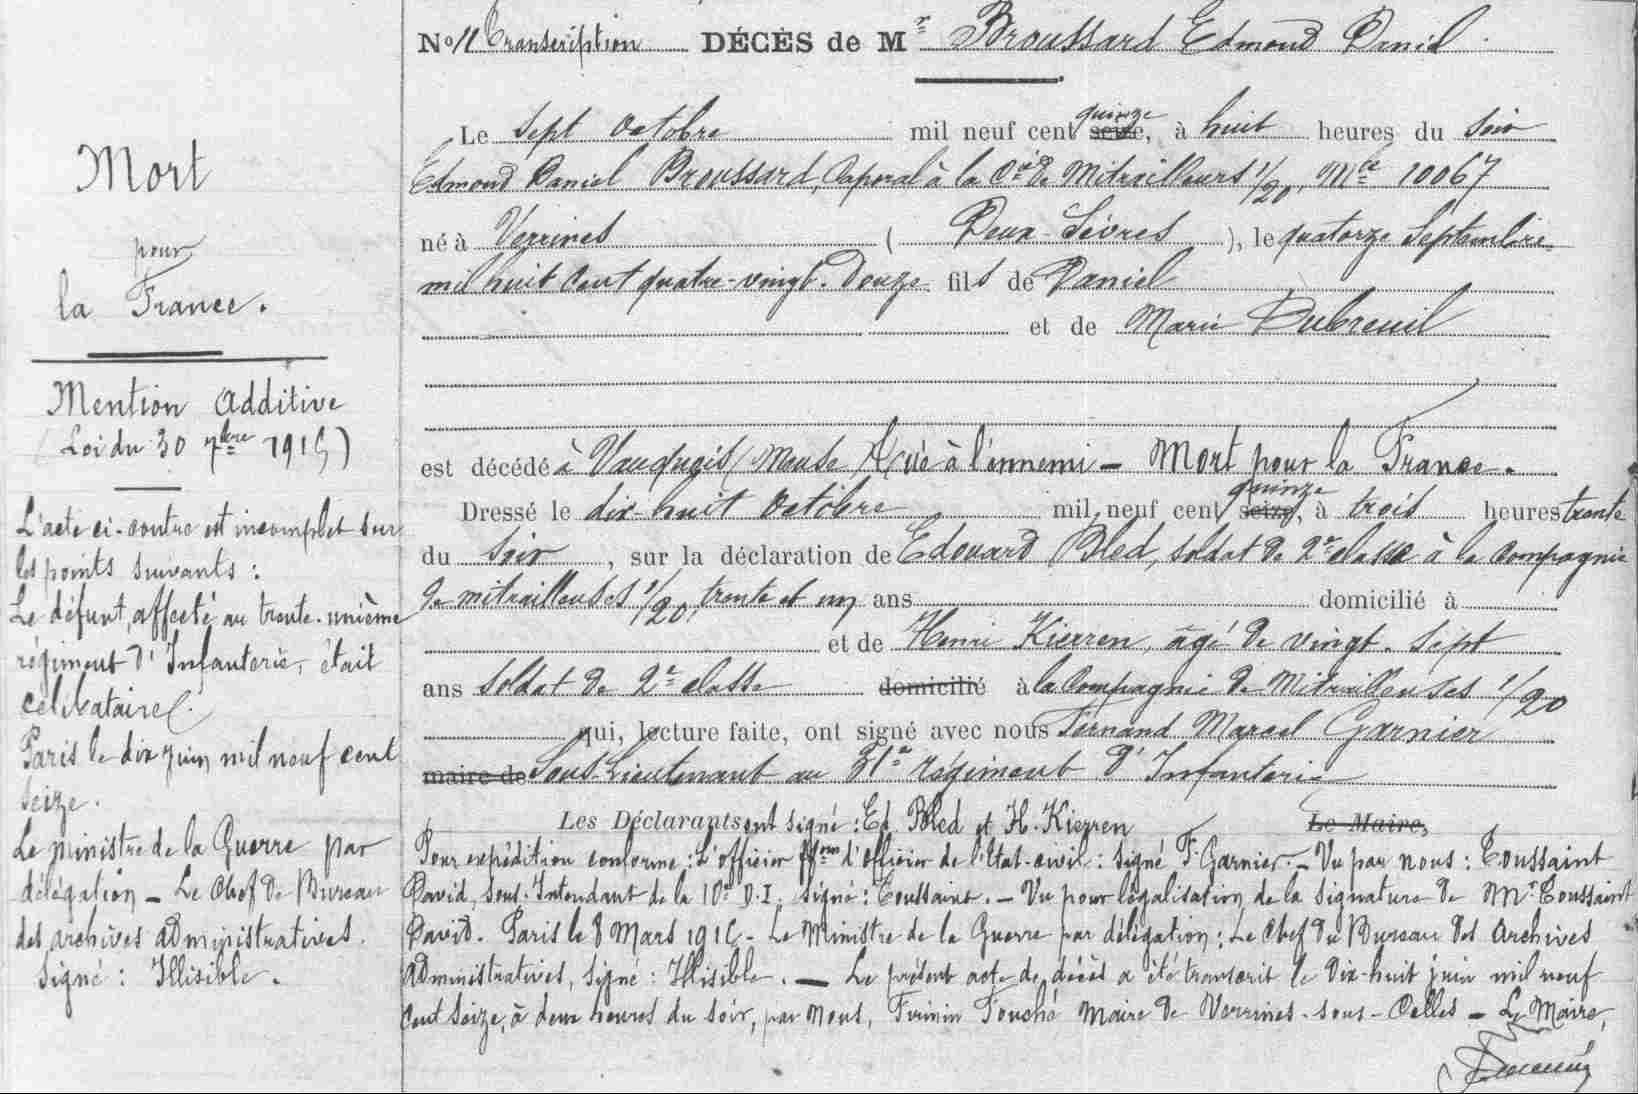 Mort
pour
la France.
Mention Additive
(Loi du 30 7bre 1915)
L'acte ci-contre est incomplet sur
les points suivants :
Le défunt, affecté au trente-unième
régiment d'Infanterie, était
célibataire.
Paris le dix juin mil neuf cent
seize.
Le ministre de la Guerre par
délégation – Le Chef de Bureau
des archives administratives.
Signé : Illisible.
No 11 Transcription DÉCÈS de Mr Broussard Edmond Daniel
Le sept octobre mil neuf cent quinze seize, à huit heures du soir
Edmond Daniel Broussard, Caporal à la Cie de Mitrailleurs 1/20, Mle 10067
né à Verrines ( Deux-Sèvres ), le quatorze Septembre
mil huit cent quatre-vingt-douze fils de Daniel
et de Marie Dubreuil
est décédé à Vauquois (Meuse) tué à l'ennemi – Mort pour la France.
Dressé le dix-huit octobre mil neuf cent quinze seize, à trois heures trente
du soir, sur la déclaration de Edouard Bled, soldat de 2e classe à la compagnie
de mitrailleuses 1/20, trente et un ans domicilié à
et de Henri Kierren, âgé de vingt-sept
ans soldat de 2e classe domicilié à la Compagnie de Mitrailleuses 1/20
qui, lecture faite, ont signé avec nous Fernand Marcel Garnier
maire de Sous-Lieutenant au 31e régiment d'Infanterie
Les Déclarants ont signé : Ed. Bled et H. Kierren Le Maire,
Pour expédition conforme : L'officier ffons d'Officier de l'Etat-civil : signé F. Garnier. – Vu par nous : Toussaint
David, Sous-Intendant de la 10e D.I. signé : Toussaint. – Vu pour légalisation de la signature de Mr Toussaint
David. Paris le 8 Mars 1916 – Le Ministre de la Guerre par délégation : Le Chef du Bureau des Archives
Administratives, signé : Illisible. – Le présent acte de décès a été transcrit le dix-huit juin mil neuf
cent seize, à deux heures du soir, par Nous, Firmin Fouché Maire de Verrines-sous-Celles – Le Maire,